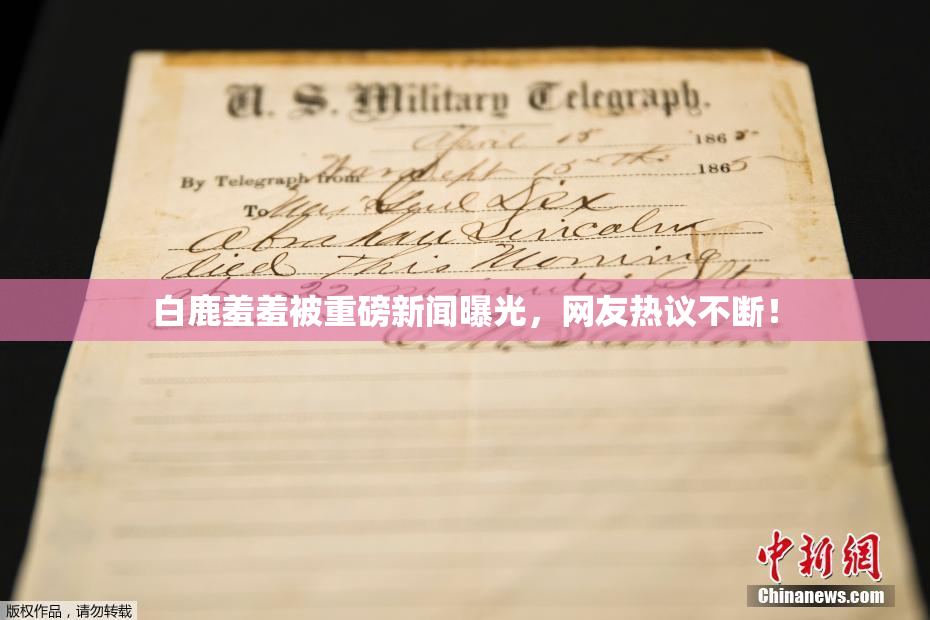 U. S. Military Telegraph.
April 15 1865
By Telegraph from War Dept 15th 1865
To Maj Genl Dix
Abraham Lincoln
died This Morning
at 22 minutes after
白鹿羞羞被重磅新闻曝光，网友热议不断！
Stanton
中新网
Chinanews.com
版权作品，请勿转载